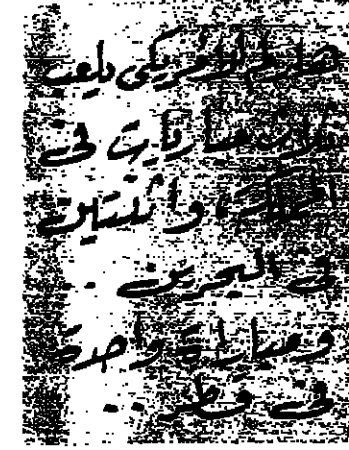 هارلم الأمريكى يلعب
ثلاث مباريات فى
المملكة واثنتين
فى البحرين ..
ومباراة واحدة
فى قطر ..